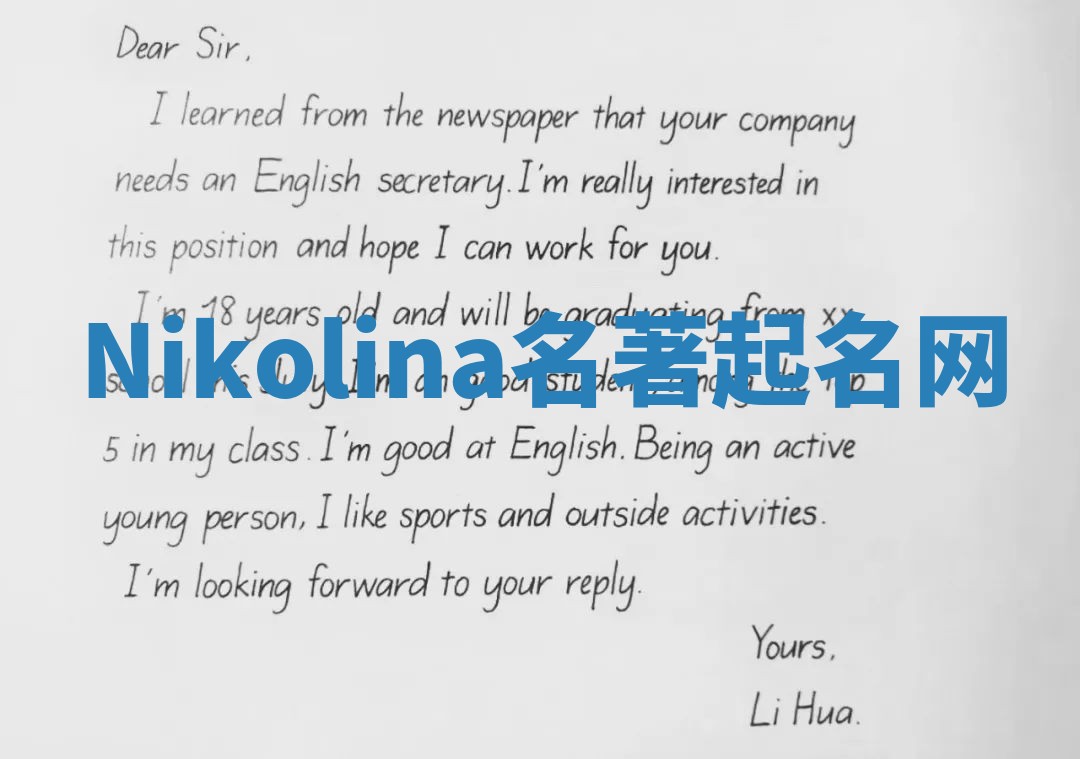 Dear Sir,
I learned from the newspaper that your company
needs an English secretary. I'm really interested in
this position and hope I can work for you.
I'm 18 years old and will be graduating from xx
Nikolina名著起名网
school this July. I'm an good student, among the top
5 in my class. I'm good at English. Being an active
young person, I like sports and outside activities.
I'm looking forward to your reply.
Yours,
Li Hua.